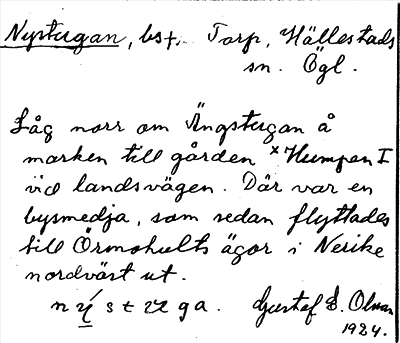 Nystugan, bst, Torp, Hällestads
sn. Ögl.
Låg norr om Ängstugan å
marken till gården × Humpen I
vid landsvägen. Där var en
bysmedja, som sedan flyttades
till Örmohults ägor i Nerike
nordväst ut.
Gustaf
1924.